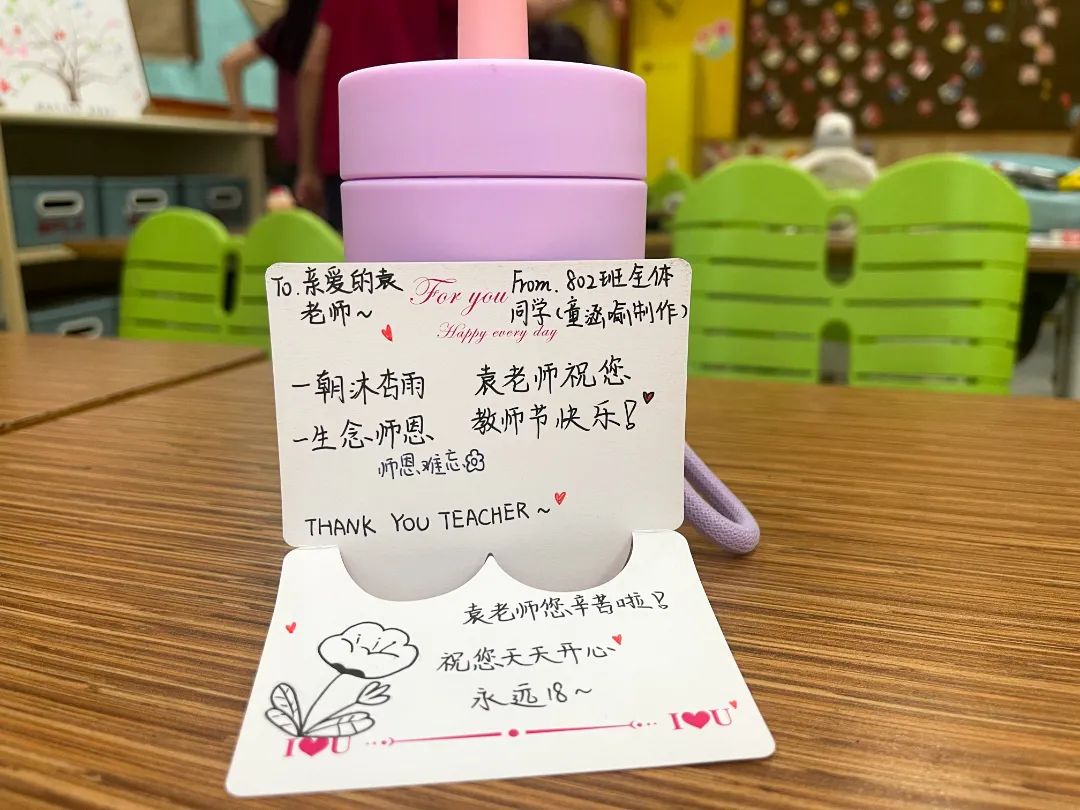 To.亲爱的袁
老师~
For you
Happy every day
From.802班全体
同学(童涵喻制作)
一朝沐杏雨
一生念师恩
师恩难忘
袁老师祝您
教师节快乐!
THANK YOU TEACHER~
袁老师您辛苦啦!
祝您天天开心
永远18~
I❤U
I❤U